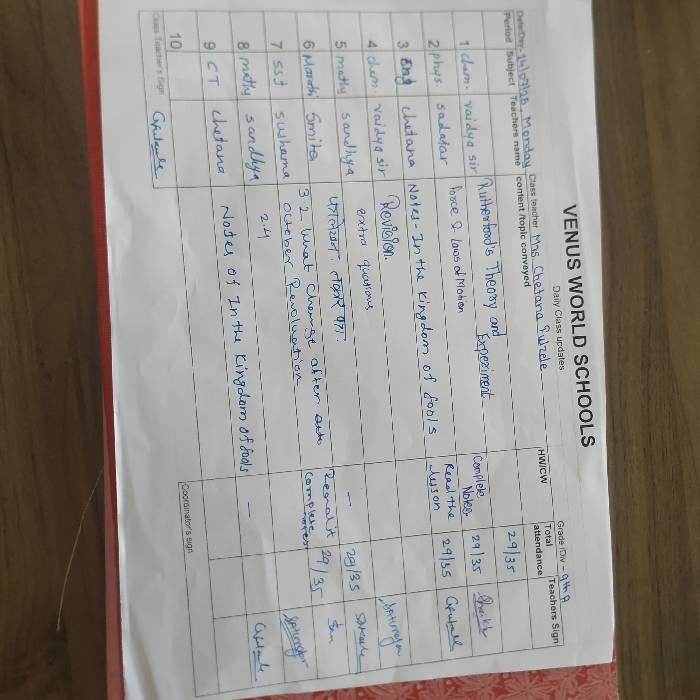 VENUS WORLD SCHOOLS
Daily Class updates
Date/Day- Monday Class teacher Mrs. Chetana Grade /Div - 9th A
Period Subject Teachers name content /topic conveyed HW/CW Total attendance Teachers Sign
1 chem. vaidya sir Rutherford's Theory and Experiment 29/35
2 phys. sadafar force & laws of Motion Complete Notes 29/35
3 Eng chetana Notes - In the Kingdom of fools Read the lesson 29/35
4 chem vaidya sir Revision.
5 maths sandhya extra questions - 29/35
6 Marathi Smita 29/35
7 SST sushama 3.2 What Change after October Revoluation complete notes
8 maths sandhya 2.4 -
9 CT chetana Notes of In the Kingdom of fools
10
Class Teacher's Sign Coordinator's sign